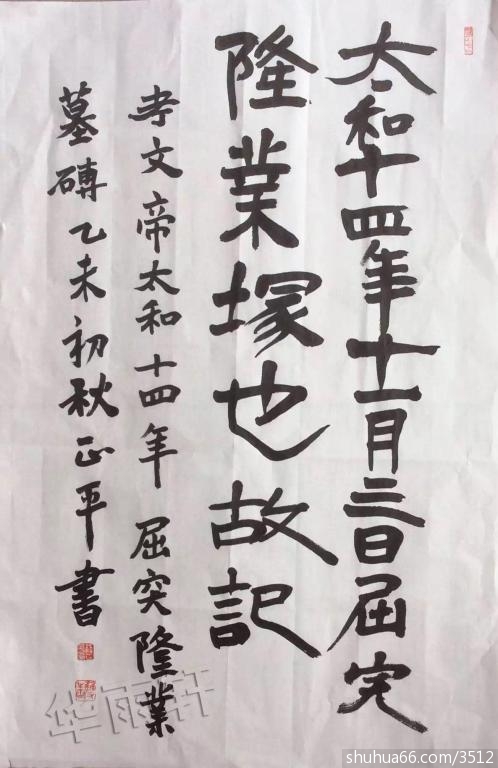 太和十四年十一月三日屈突
隆業塚也故記
孝文帝太和十四年屈突隆業
墓磚乙未初秋正平書
华雨轩
shuhua66.com/3512